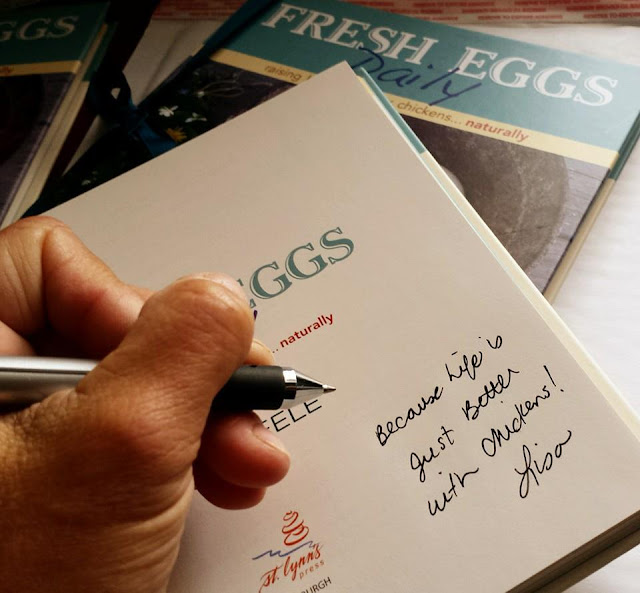 GGS
FRESH EGGS
Daily
raising
chickens... naturally
EGGS
... naturally
EELE
Because Life is
Just Better
with chickens!
Lisa
st. lynn's
press
BURGH